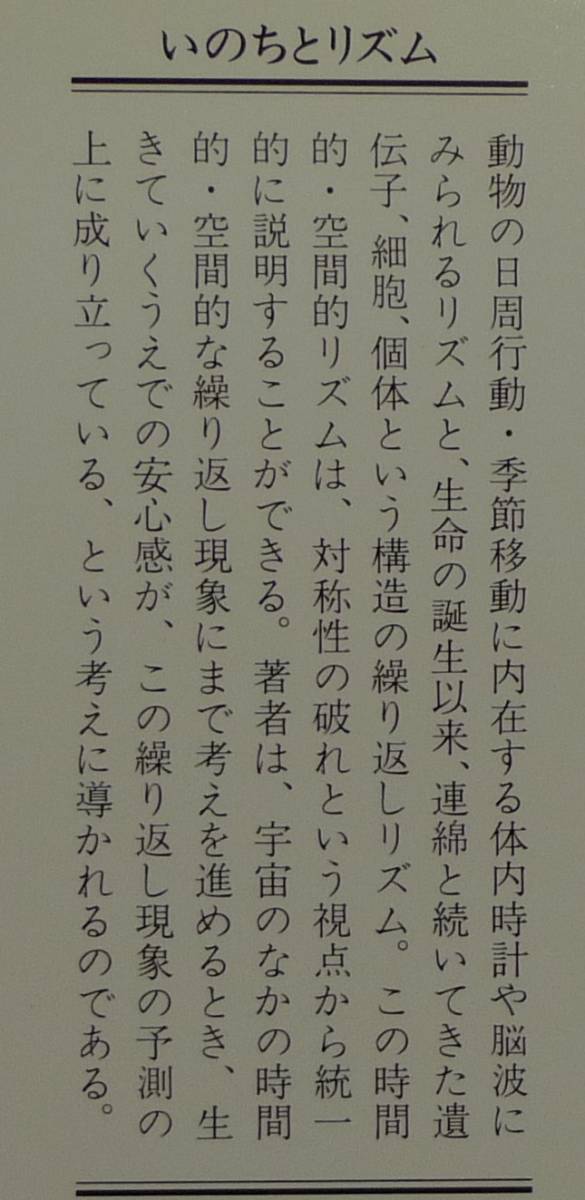 いのちとリズム
動物の日周行動・季節移動に内在する体内時計や脳波に
みられるリズムと、生命の誕生以来、連綿と続いてきた遺
伝子、細胞、個体という構造の繰り返しリズム。この時間
的・空間的リズムは、対称性の破れという視点から統一
的に説明することができる。著者は、宇宙のなかの時間
的・空間的な繰り返し現象にまで考えを進めるとき、生
きていくうえでの安心感が、この繰り返し現象の予測の
上に成り立っている、という考えに導かれるのである。